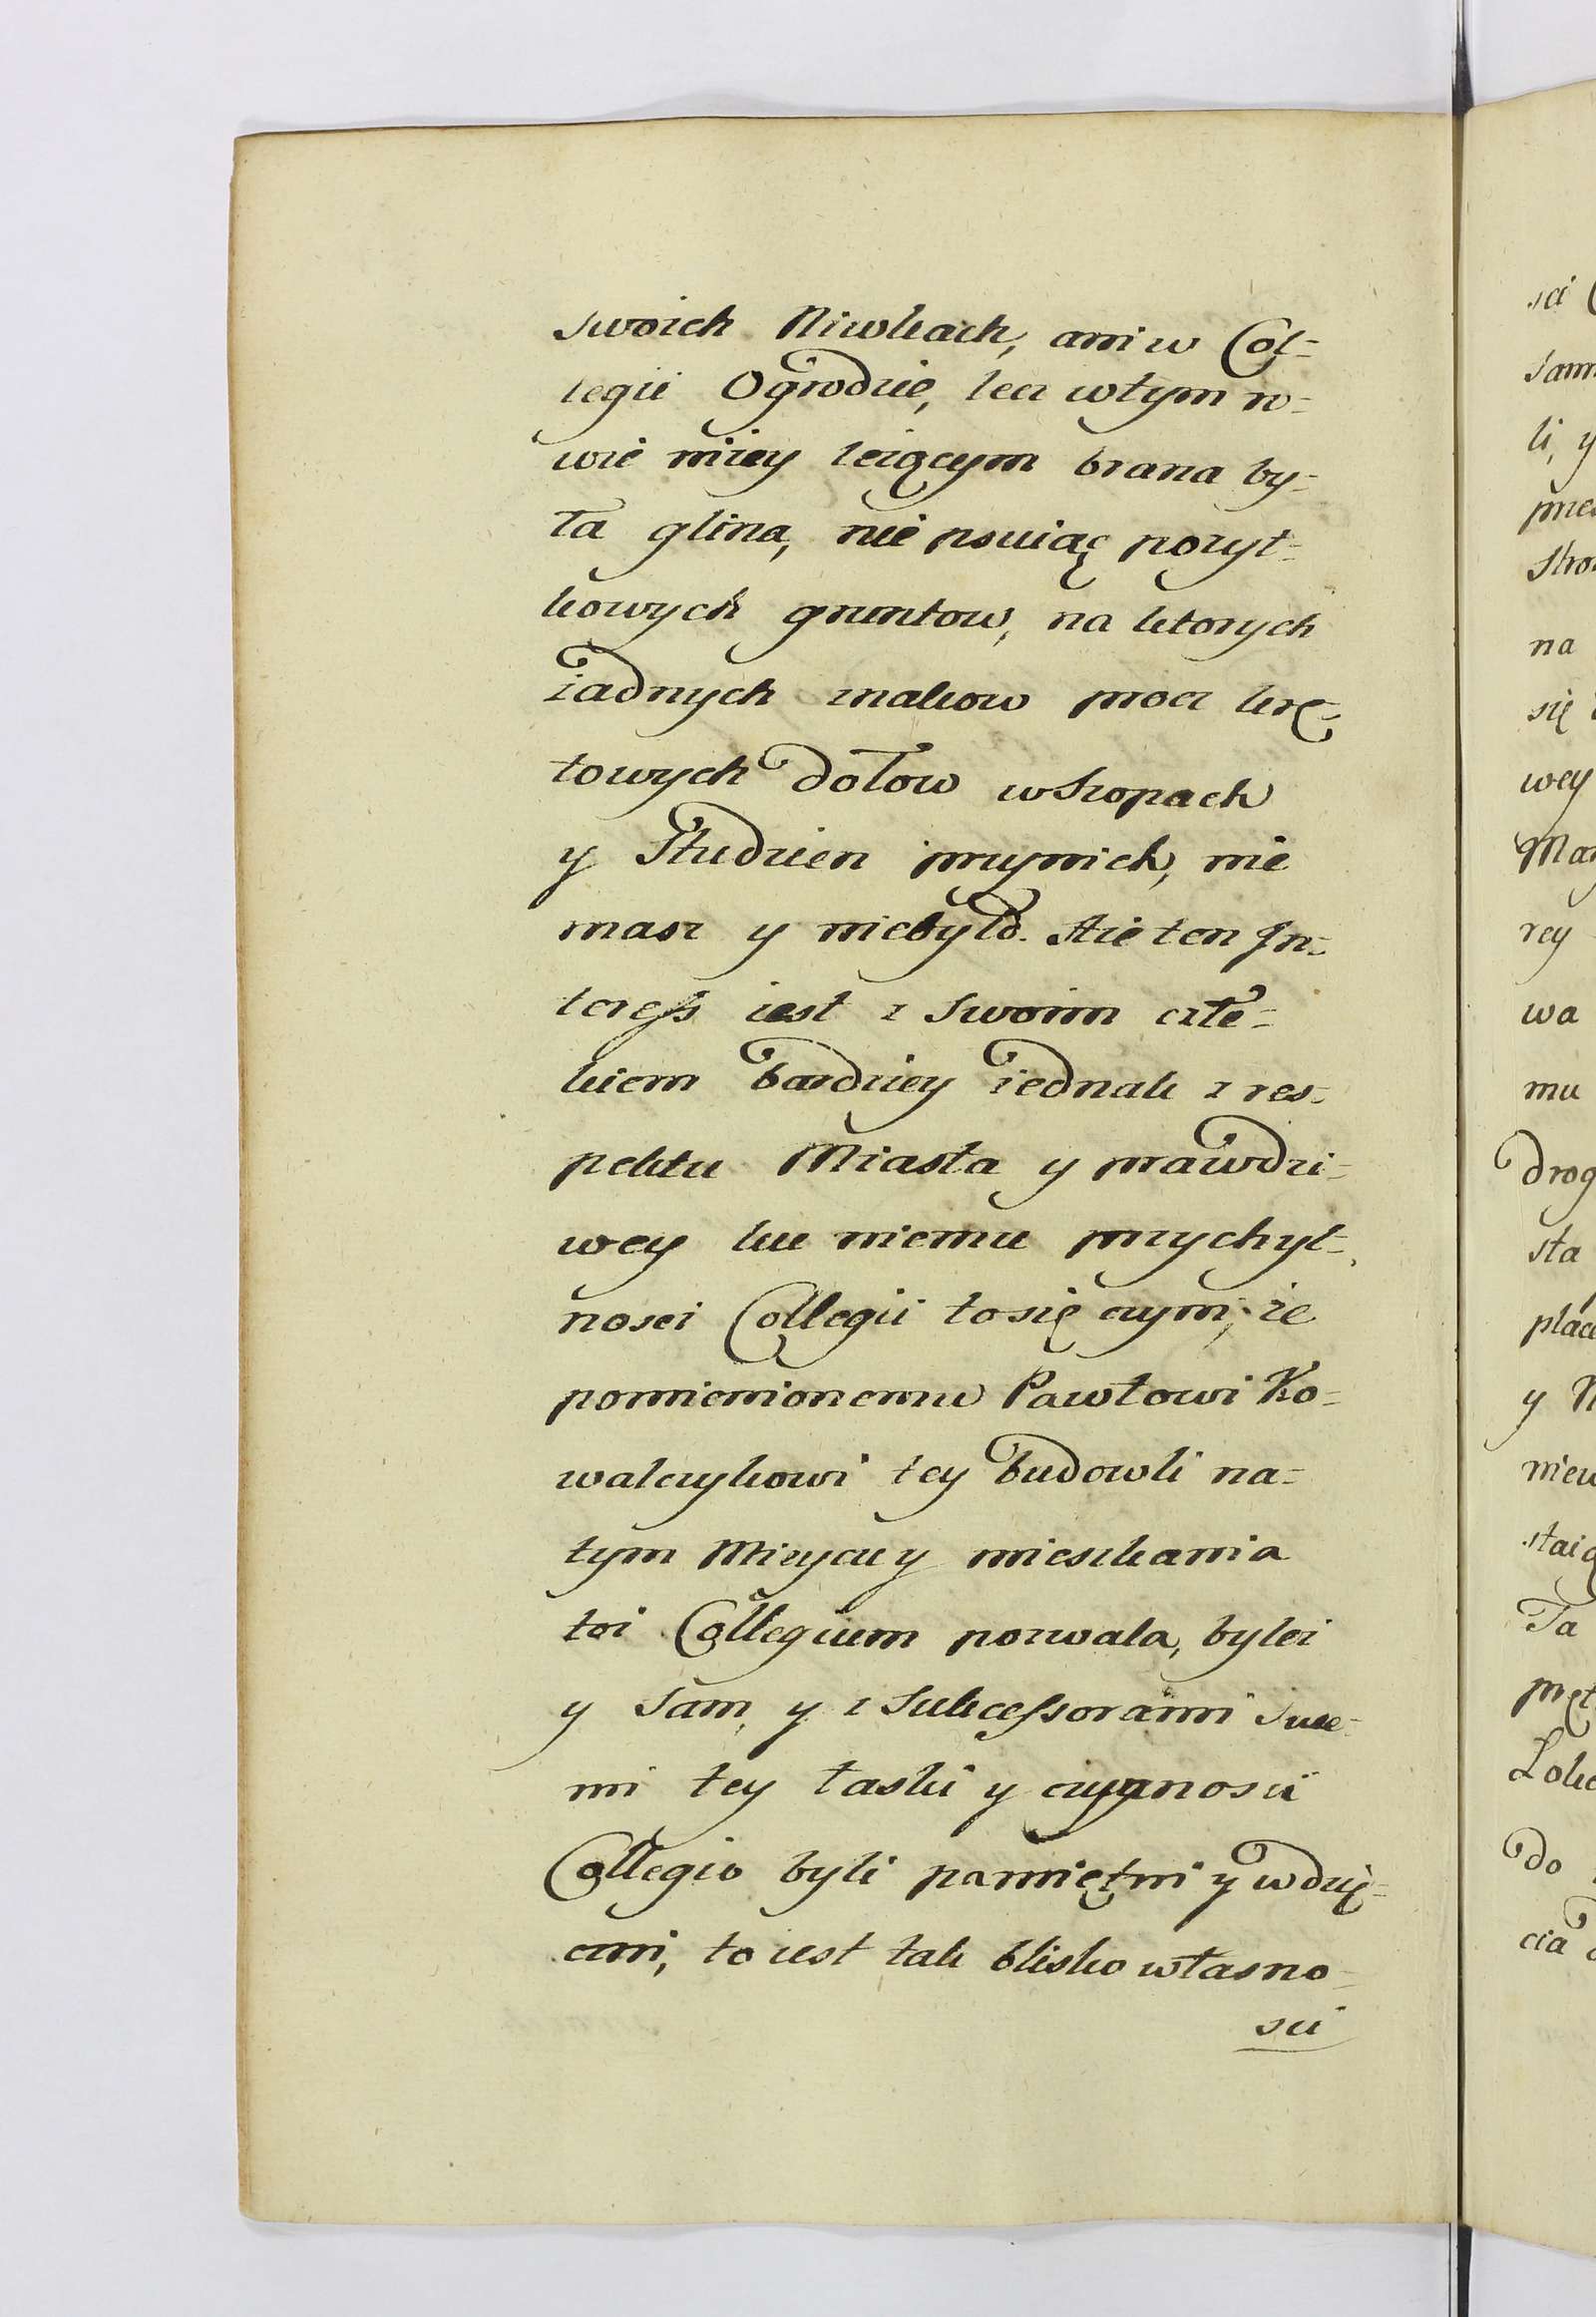 swoich Niwkach, ani w Col=
legii Ogrodzie, lecz w tym ro=
wie niżey leżącym brana by=
ła glina, nie psuiąc pożyt=
kowych gruntow, na ktorych
żadnych znakow procz krę=
towych dołow w Szopach
y Studzien przynich, nie
masz y niebyło. Ale ten In=
teress iest z Swoim człe=
kiem bardziey iednak z res=
pektu Miasta y prawdzi=
wey ku niemu przychyl=
nosci Collegii to się czyni, że
pomienionemu Pawłowi Ko=
walczykowi tey budowli na=
tym Mieyscu y mieszkania
toż Collegium pozwala, byleż
y Sam, y z Sukcessorami swe=
mi tey łaski y czynnosci
Collegio byli pamiętni y wdzię=
czni, to iest tak blisko własno=
sci
sci
Sam
li, y
prze
Stro
na
się
wey
Ma
rey
wa
mu
drog
sta
plac
y N
niew
staią
Ta
pręt
Loko
do
cia